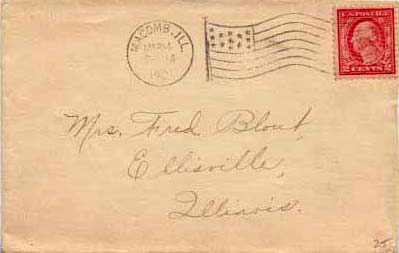 MACOMB, ILL.
U.S. POSTAGE
2 CENTS 2
Mrs. Fred Blout,
Ellisville,
Illinois.
25